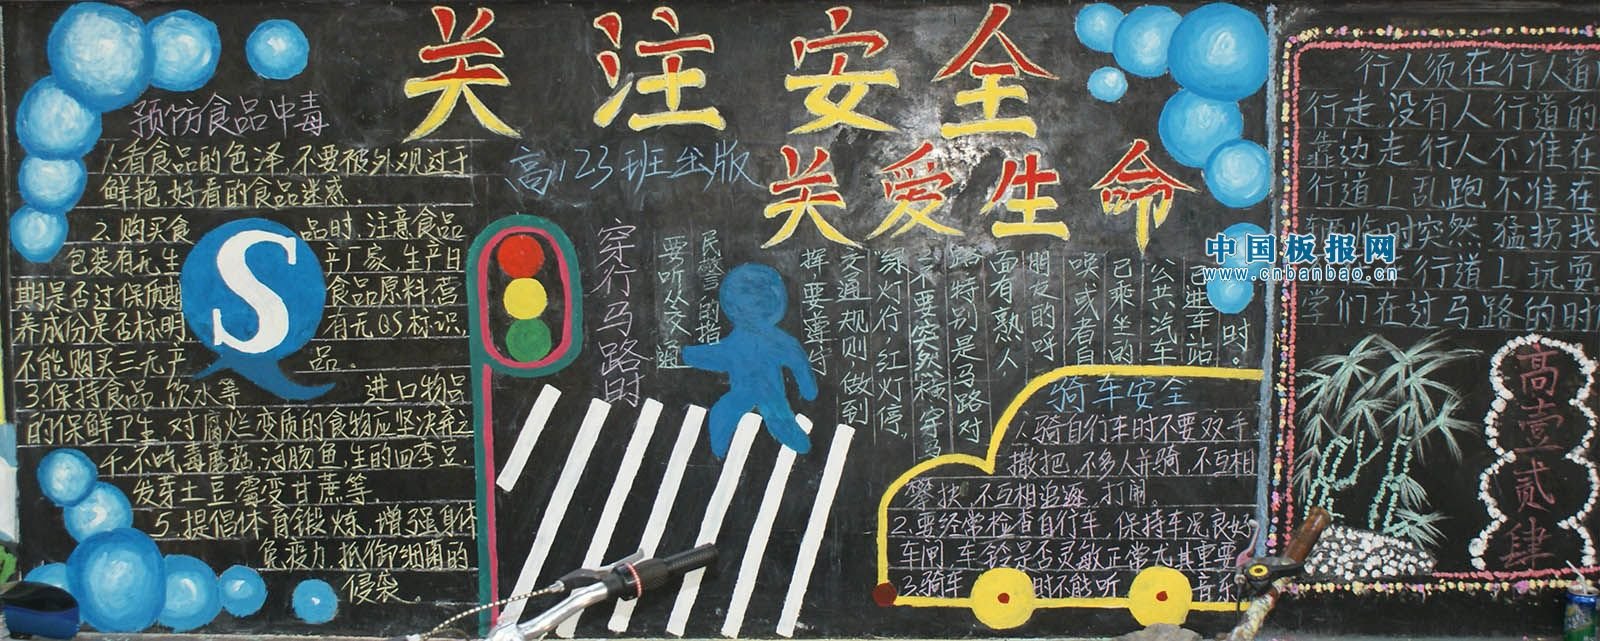 关注安全
关爱生命
高123班出版
预防食品中毒
1.看食品的色泽,不要被外观过于
鲜艳,好看的食品迷惑.
2.购买食品时,注意食品
包装有无生产厂家,生产日
期是否过保质期食品原料,营
养成份是否标明有无QS标识,
不能购买三无产品.
3.保持食品,饮水等进口物品
的保鲜卫生,对腐烂变质的食物应坚决弃之
4.不吃毒蘑菇,河豚鱼,生的四季豆,
发芽土豆霉变甘蔗等.
5.提倡体育锻炼,增强身体
免疫力,抵御细菌的
侵袭.
S
穿行马路时
要听从交通
民警的指
挥要遵守
交通规则做到
绿灯行,红灯停,
不要突然横穿马
路特别是马路对
面有熟人
朋友的呼
唤或者自
己乘坐的
公共汽车
已进车站
时。
骑车安全
1.骑自行车时不要双手
撒把,不多人并骑,不互相
攀扶,不互相追逐,打闹。
2.要经常检查自行车,保持车况良好
车闸,车铃是否灵敏正常尤其重要
3.骑车时不能听音乐
中国板报网
www.cnbanbao.cn
行人须在行人道
行走,没有人行道的
靠边走,行人不准在
行道上乱跑不准在
辆临时突然猛拐找
在行道上玩耍
学们在过马路的时
高壹贰肆